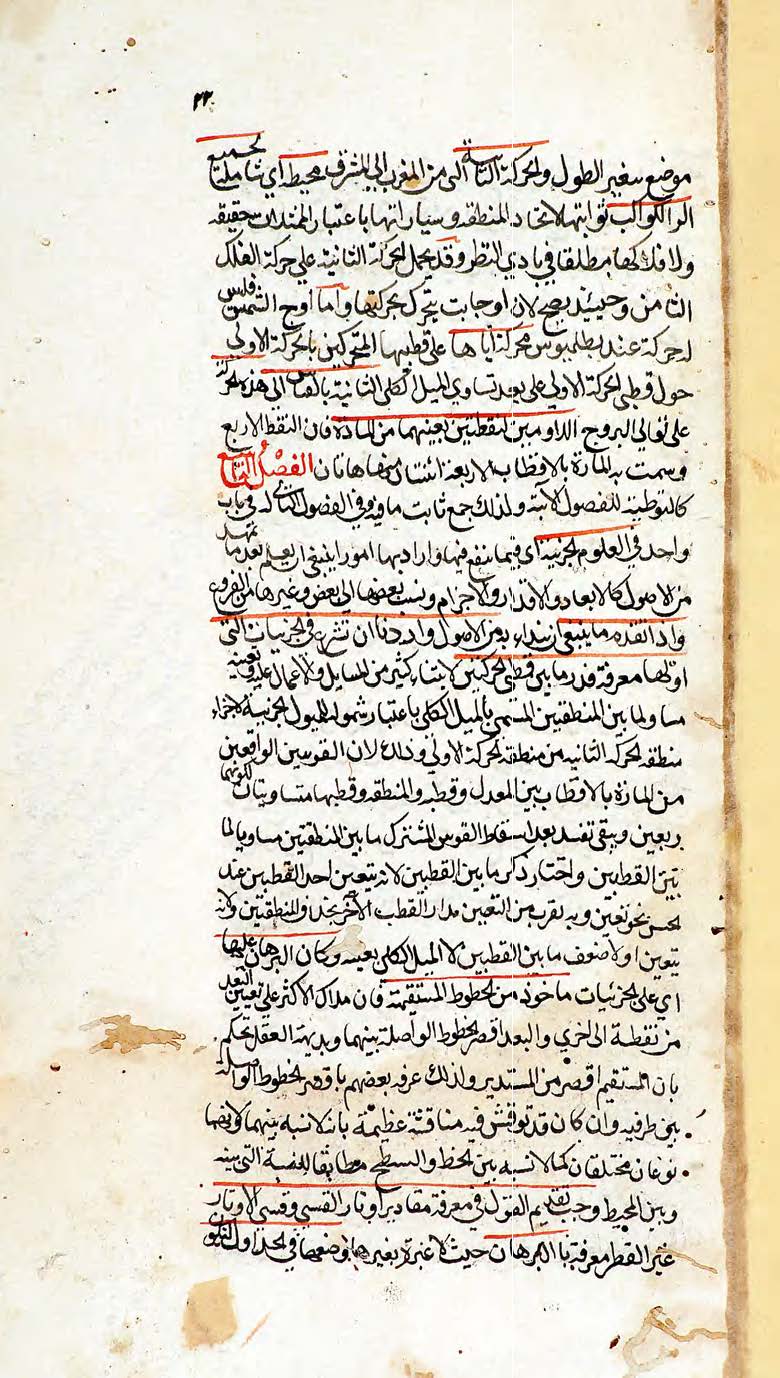 ٢٢
موضع بتغير الطول والحركة الثانية التى من المغرب الى المشرق محيط اى شاملة لجميع
الكواكب ثوابتها لاتحاد المنطقه وسياراتها باعتبار الممثلات حقيقه
ولافلاكها مطلقا في بادي النظر وقد يحمل الحركة الثانية على حركة الفلك
الثامن وحينئذ يصح لان اوجات تتحرك بحركتها واما اوج الشمس فليس
له حركة عند بطلميوس محركة اياها على قطبيها المتحركين بالحركة الاولى
حول قطبى الحركة الاولى على بعد تساوي الميل الكلى الثانية بالقياس الى هذه الحركة
على توالى البروج المداومين لنقطتين بعينهما من المارة فان النقط الاربع
وسمت به المارة بالاقطاب الاربعة اثنتان منها هاتان الفصل التاسع
كالتوطية للفصول الآتية ولذلك جمع ثابت ما فيه وفى الفصول التالية له فى باب
واحد في العلوم الجزئية اى فيما ينتفع فيها واراد بها امورا ينبغي ان يعلم بعد ما تمهد
من الاصول كالابعاد والاقدار والاجرام ونسب بعضها الى بعض وغيرها من الفروع
واذ اتقدم ما ينبغى ان نبداء به من الاصول واردنا ان نشرع فى الجزئيات التى
اولها معرفة قدر ما بين قطبى الحركتين لابتناء كثير من المسايل والاعمال عليه وتعينه
مساو لما بين المنطقتين المسمى بالميل الكلى باعتبار شموله للميول الجزئية لاجزاء
منطقه الحركة الثانيه من منطقه الحركة الاولى وذلك لان القوسين الواقعين
من المارة بالاقطاب بين المعدل وقطبه والمنطقه وقطبها متساويتان لكونهما
ربعين ويبقى تفسد بعد اسقاط القوس المشترك ما بين المنطقتين مساويا لما
بين القطبين واختار ذكر ما بين القطبين لانه يتعين احد القطبين عند
الحس نحو تعين وبه يقرب من التعين مدار القطب الآخر بخلاف المنطقتين ولانه
يتعين اولا ضعف ما بين القطبين لا الميل الكلى بعينه وكان البرهان عليها
اى على الجزئيات ماخوذ من الخطوط المستقيمة فان ملاك الاكثر على تعيين البعد
من نقطة الى اخري والبعد اقصر الخطوط الواصلة بينهما وبديهة العقل تحكم
بان المستقيم اقصر من المستدير ولذلك عرفه بعضهم باقصر الخطوط الواصلة
بين طرفيه وان كان قد توافش فيه مناقشة عظيمة بان لا نسبة بينهما لانهما
نوعان مختلفان كما لا نسبة بين الخط والسطح مطابقا للنسبة التى بينه
وبين المحيط وجب تقديم القول في معرفة مقادير اوتار القسى وقسى الاوتار
غير القطر معرفة بالبرهان حيث لا عبرة بغيرها ووضعها فى الجداول